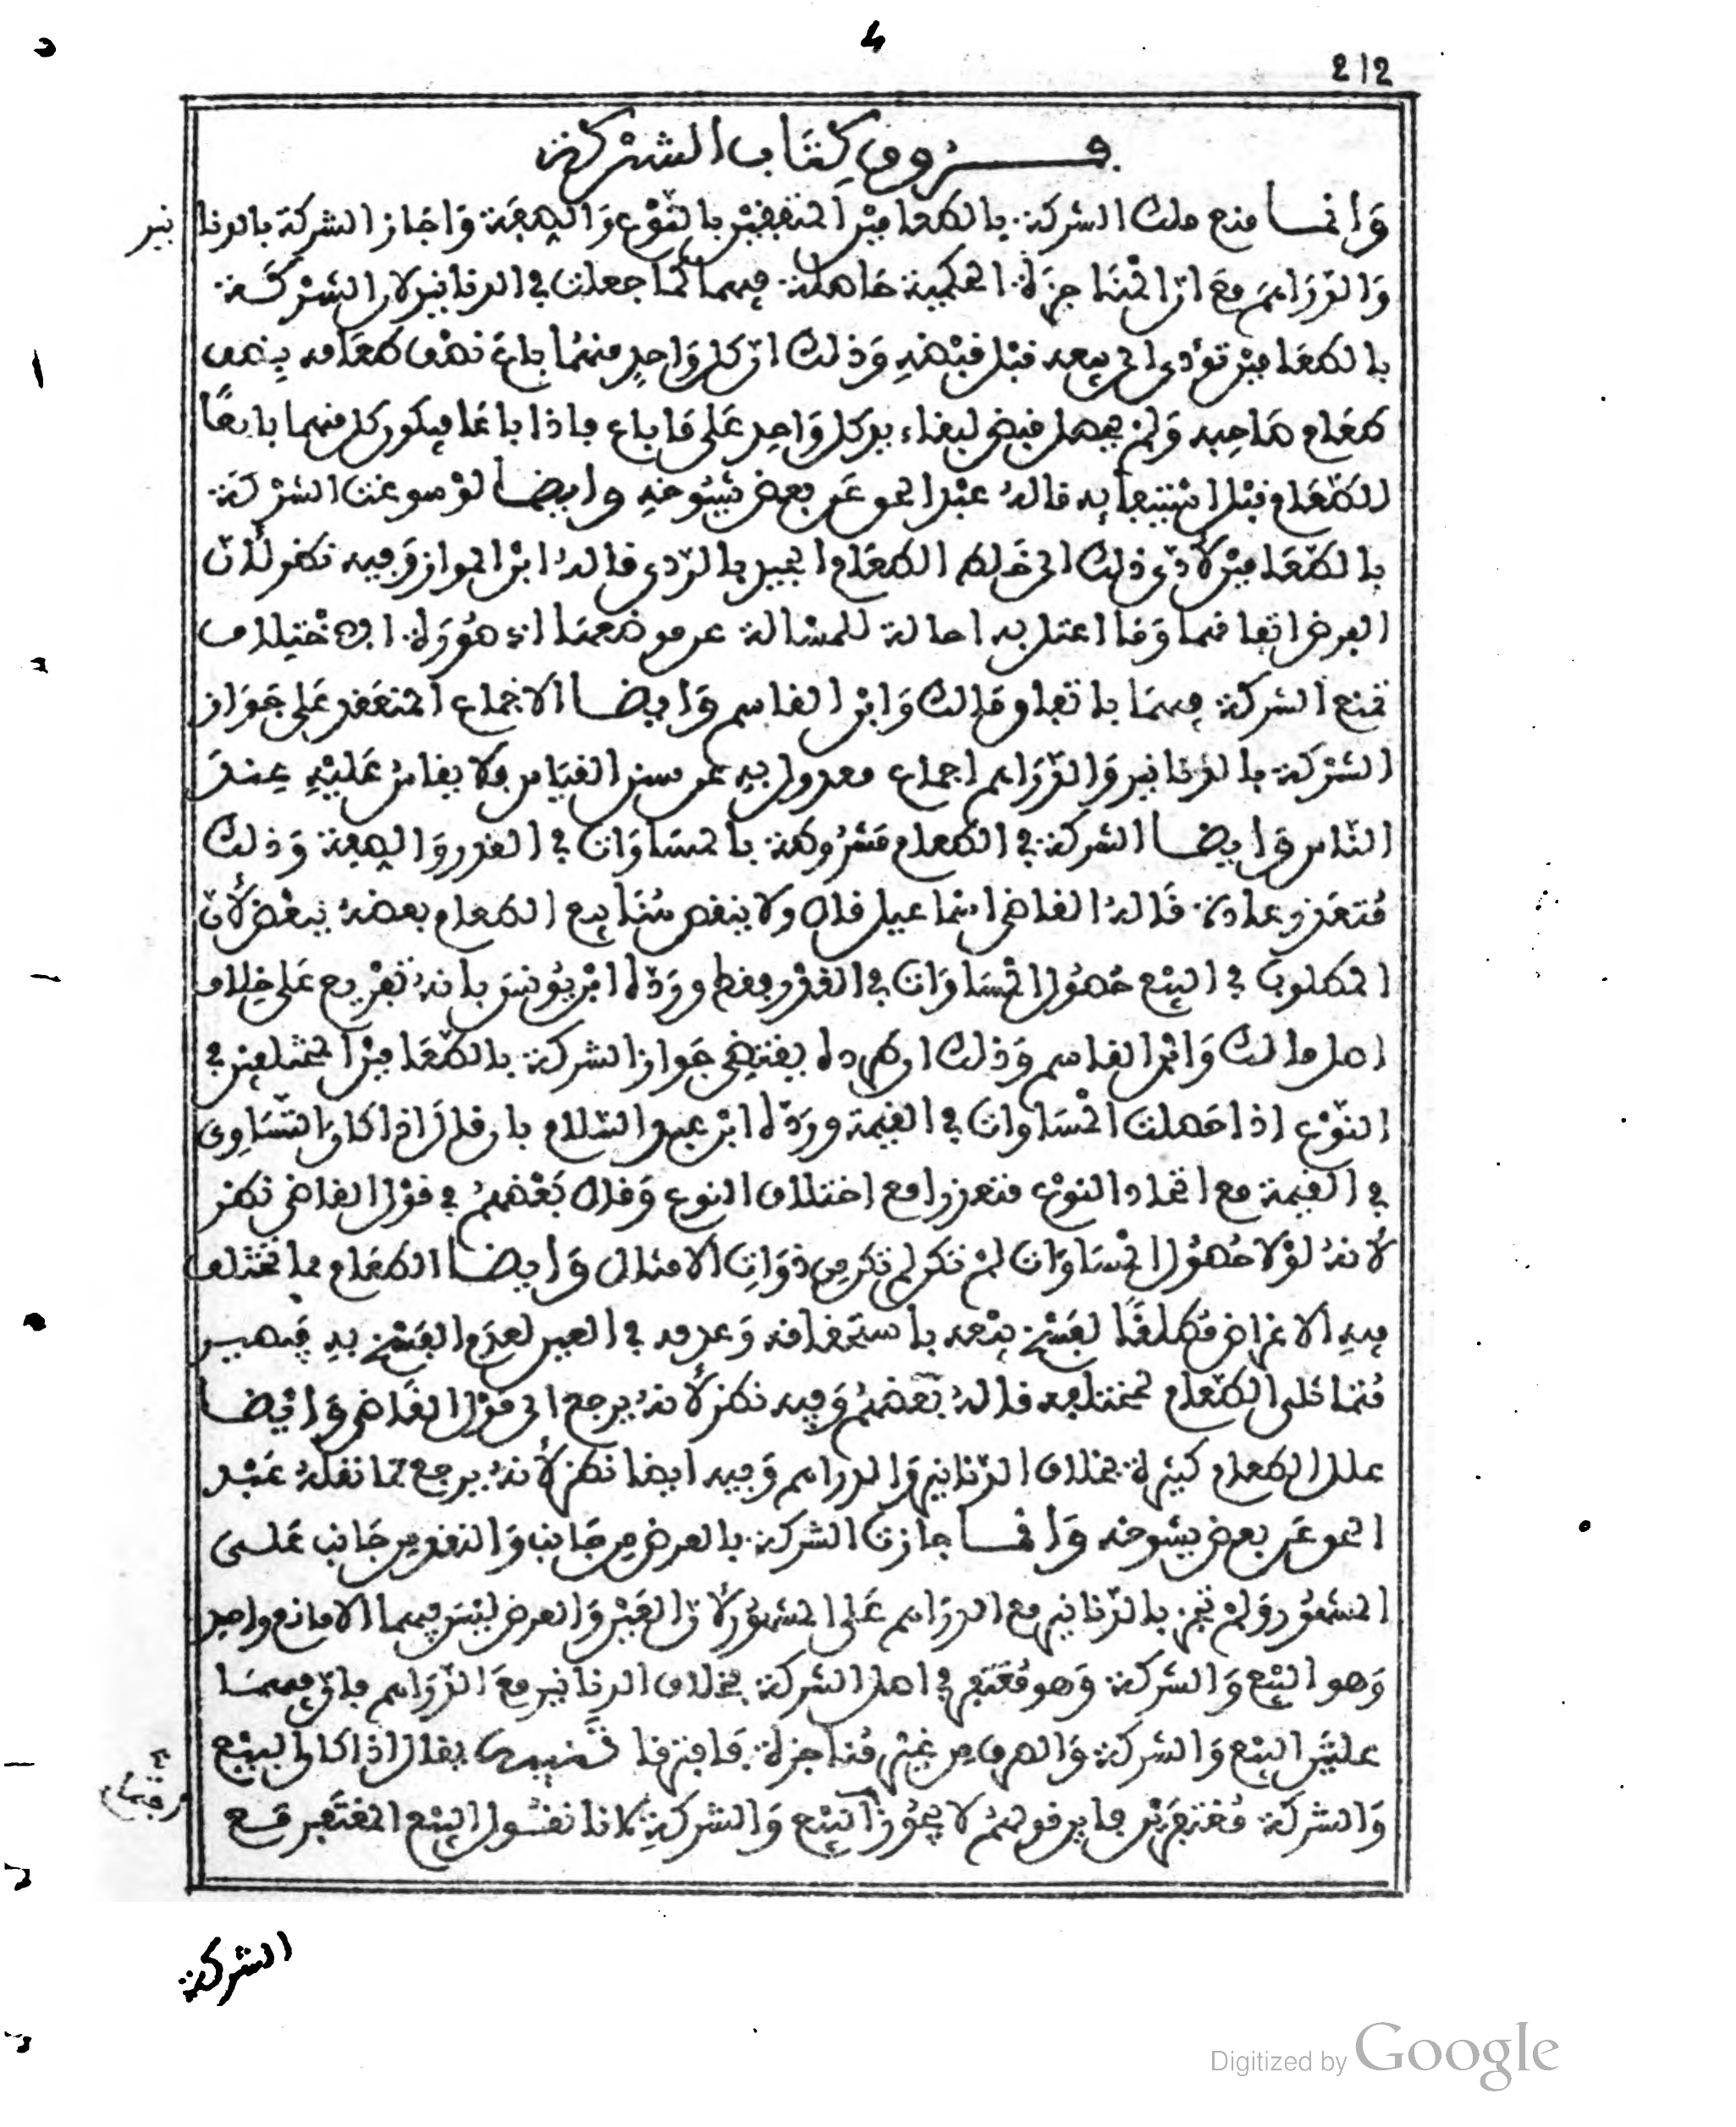 4
212
فروق كتاب الشركة
وَانما منع ملك الشركة بالطعامين المتفقين بالنوع والصفة وَاجاز الشركة بالدنانير
وَالدرَاهم مع ان المناجزة الحكمية حاصلة فيهما كما جعلت في الدنانير لان الشركة
بالطعامين تؤدي الى بيعه قبل قبضه وَذلك ان كل وَاحد منهما باع نصف طعامه بنصف
طعام صاحبه وَلم يحصل قبض لبقاء يد كل وَاحد على ما باع فاذا باعا فيكون كل منهما بائعا
للطعام قبل استيفائه قاله عبد الحق عن بعض شيوخه وايضا لو سوغت الشركة
بالطعامين لأدى ذلك الى خلط الطعام الجيد بالردي قاله ابن المواز وَفيه نظر لأن
الفرض اتفاقهما وَما اعتل به احالة للمسالة عن موضعها اذ صورة الاختلاف
تمنع الشركة فيها باتفاق مالك وَابن القاسم وَايضا الاجماع المنعقد عَلى جواز
الشركة بالدنانير وَالدرَاهم اجماع معدول به عن سنن القياس فلا يقاس عليه عند
الناس وَايضا الشركة في الطعام مشروطة بالمساوات في القدر وَالصفة وَذلك
متعذر عادة قاله القاضي اسماعيل قال ولا ينقض هذا ببيع الطعام بعضه ببعض لأن
المطلوب في البيع حصول المساوات في القدر فقط ورده ابن يونس بانه تفريع على خلاف
اصل مالك وَابن القاسم وَذلك ان طرده يقتضي جواز الشركة بالطعامين المختلفين في
النوع اذا حصلت المساوات في القيمة ورده ابن عبد السلام بان قال اذا كان التساوي
في القيمة مع اتحاد النوع متعذرا فمع اختلاف النوع وَقال بعضهم في قول القاضي نظر
لانه لولا حصول المساوات لم تكن لم تكن من ذوات الامثال وَايضا الطعام مما تختلف
فيه الاغراض مطلقا لفسخ بيعه باستحقاقه وَعدمه في العين لعدم الفسخ به فيصير
متماثل الطعام كمختلفه قاله بعضهم وَفيه نظر لأنه يرجع الى قول القاضي وَايضا
علل الطعام كثيرة بخلاف الدنانير وَالدراهم وَفيه ايضا نظر لأنه يرجع لما نقله عبد
الحق عن بعض شيوخه وَانما جازت الشركة بالعرض من جانب وَالنقد من جانب على
المشهور وَلم تجز بالدنانير مع الدراهم على المشهور لأن العين وَالعرض ليس فيهما الا مانع واحد
وَهو البيع وَالشركة وَهو مغتفر في اصل الشركة بخلاف الدنانير مع الدرَاهم فان فيهما
علتين البيع وَالشركة وَالصرف من غير مناجزة فافترقا تنبيه يقال اذا كان البيع
وَالشركة مغتفرين فاين قولهم لا يجوز البيع وَالشركة لانا نقول البيع المغتفر مع
الشركة
Digitized by Google